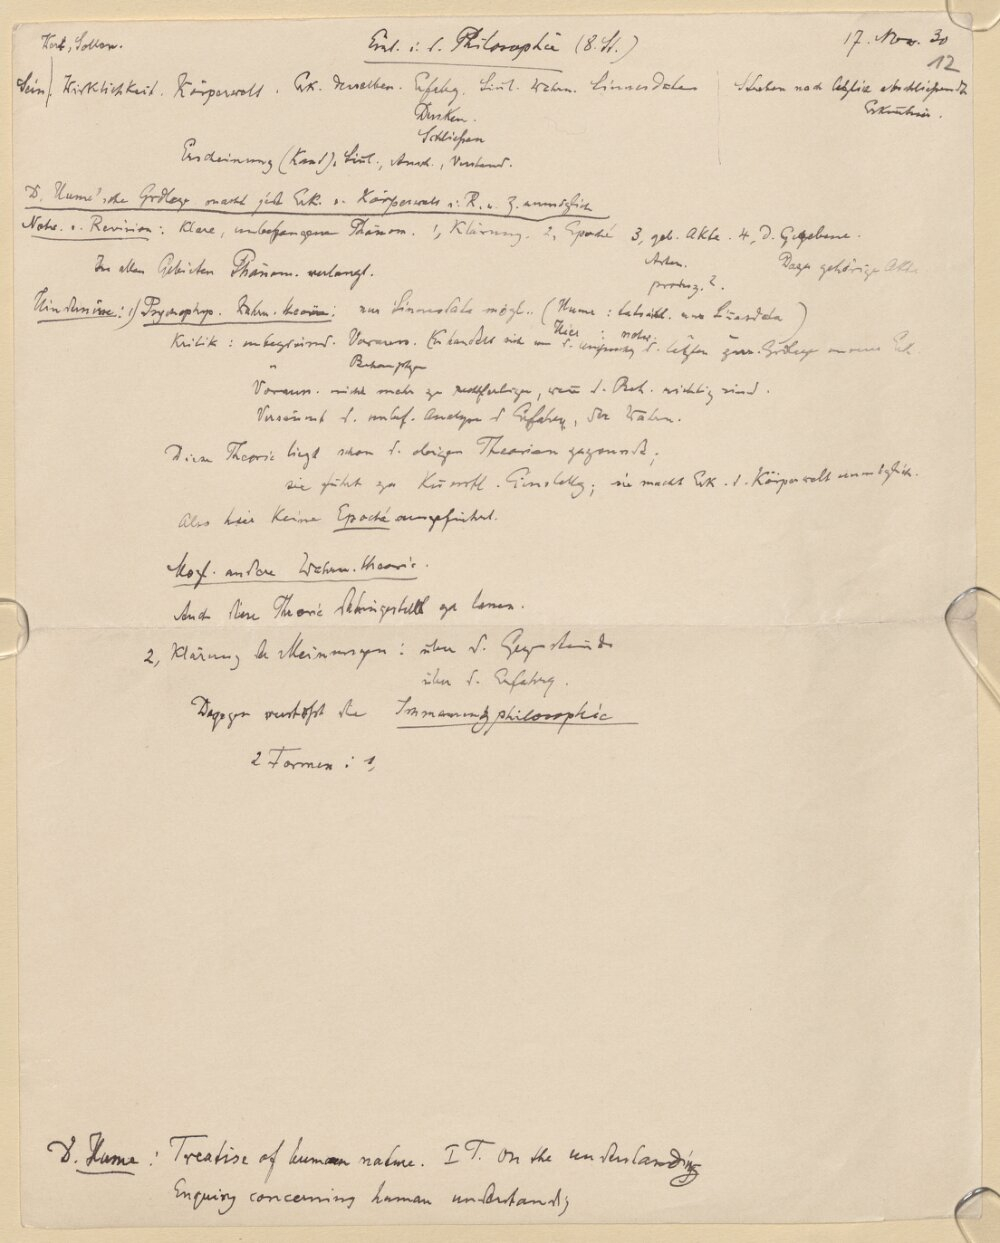 Wert, Sollen. Einl. i. d. Philosophie (8. St.) 17. Nov. 30
12
Sein Wirklichkeit. Körperwelt. Erk. derselben. Erfahrg. Sinnl. Wahrn. Sinnesdaten Streben nach abschließende
Denken. Erkenntnis.
Schließen
Erscheinung (Kant), Sinnl., Ansch., Verstand.
D. Hume'sche Grdlage macht jede Erk. d. Körperwelt i. R. u. Z. unmöglich
Notw. d. Revision: Klare, unbefangene Phänom. 1, Klärung. 2, Epoché 3, geb. Akte. 4, d. Gegebene.
In allen Gebieten Phänom. verlangt. Arten. Dazu gehörige Akte
Hindernisse: 1) Psychophys. Wahrn. theorie: nur Sinnesdata mögl. (Hume: tatsächl. nur Sinnesdata)
Kritik: unbegründ. Vorauss. Es handelt sich um d. d. letzten Grdlage unserer Erk.
" Behauptgen
Vorauss. nicht mehr zu rechtfertigen, wenn d. Beh. richtig sind.
Versäumt d. unbef. Analyse d. Erfahrg, der Wahrn.
Diese Theorie liegt schon d. obigen Theorien zugrunde;
sie führt zu künstl. Einstellg; sie macht Erk. d. Körperwelt unmöglich.
Also hier keine Epoché ausgeführt.
Mögl. andere Wahrn. theorie.
Auch diese Theorie dahingestellt zu lassen.
2, Klärung der Meinungen: über d. Gegenstände
über d. Erfahrg.
Dagegen verstößt die Immanenzphilosophie
2 Formen: 1,
D. Hume: Treatise of human nature. I T. On the understanding
Enquiry concerning human understandg